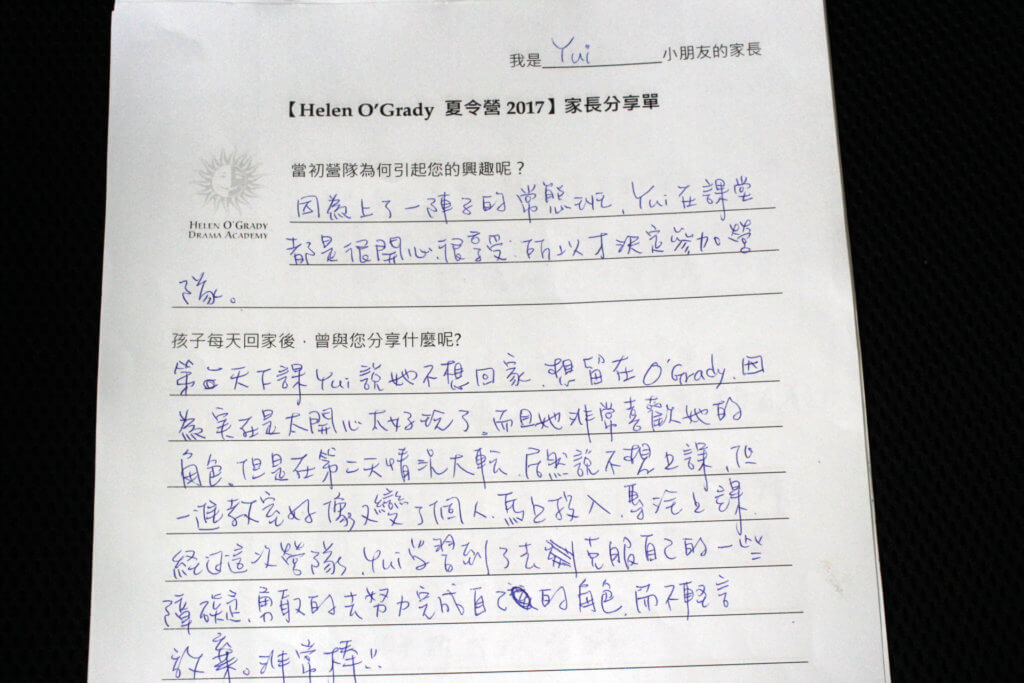 我是 Yui 小朋友的家長
【Helen O'Grady 夏令營 2017】家長分享單
當初營隊為何引起您的興趣呢？
HELEN O'GRADY
DRAMA ACADEMY
因為上了一陣子的常態班，Yui 在課堂
都是很開心、很享受；所以才決定參加營
隊。
孩子每天回家後，曾與您分享什麼呢?
第一天下課 Yui 說她不想回家，想留在 O'Grady，因
為实在是太開心太好玩了。而且她非常喜歡她的
角色，但是在第二天情況大転，居然說不想上課，但
一進教室好像又變了個人，馬上投入，專注上課，
経过這次營隊，Yui 学習到了去克服自己的一些
障礙，勇敢的去努力完成自己的角色，而不輕言
放棄。非常棒!!